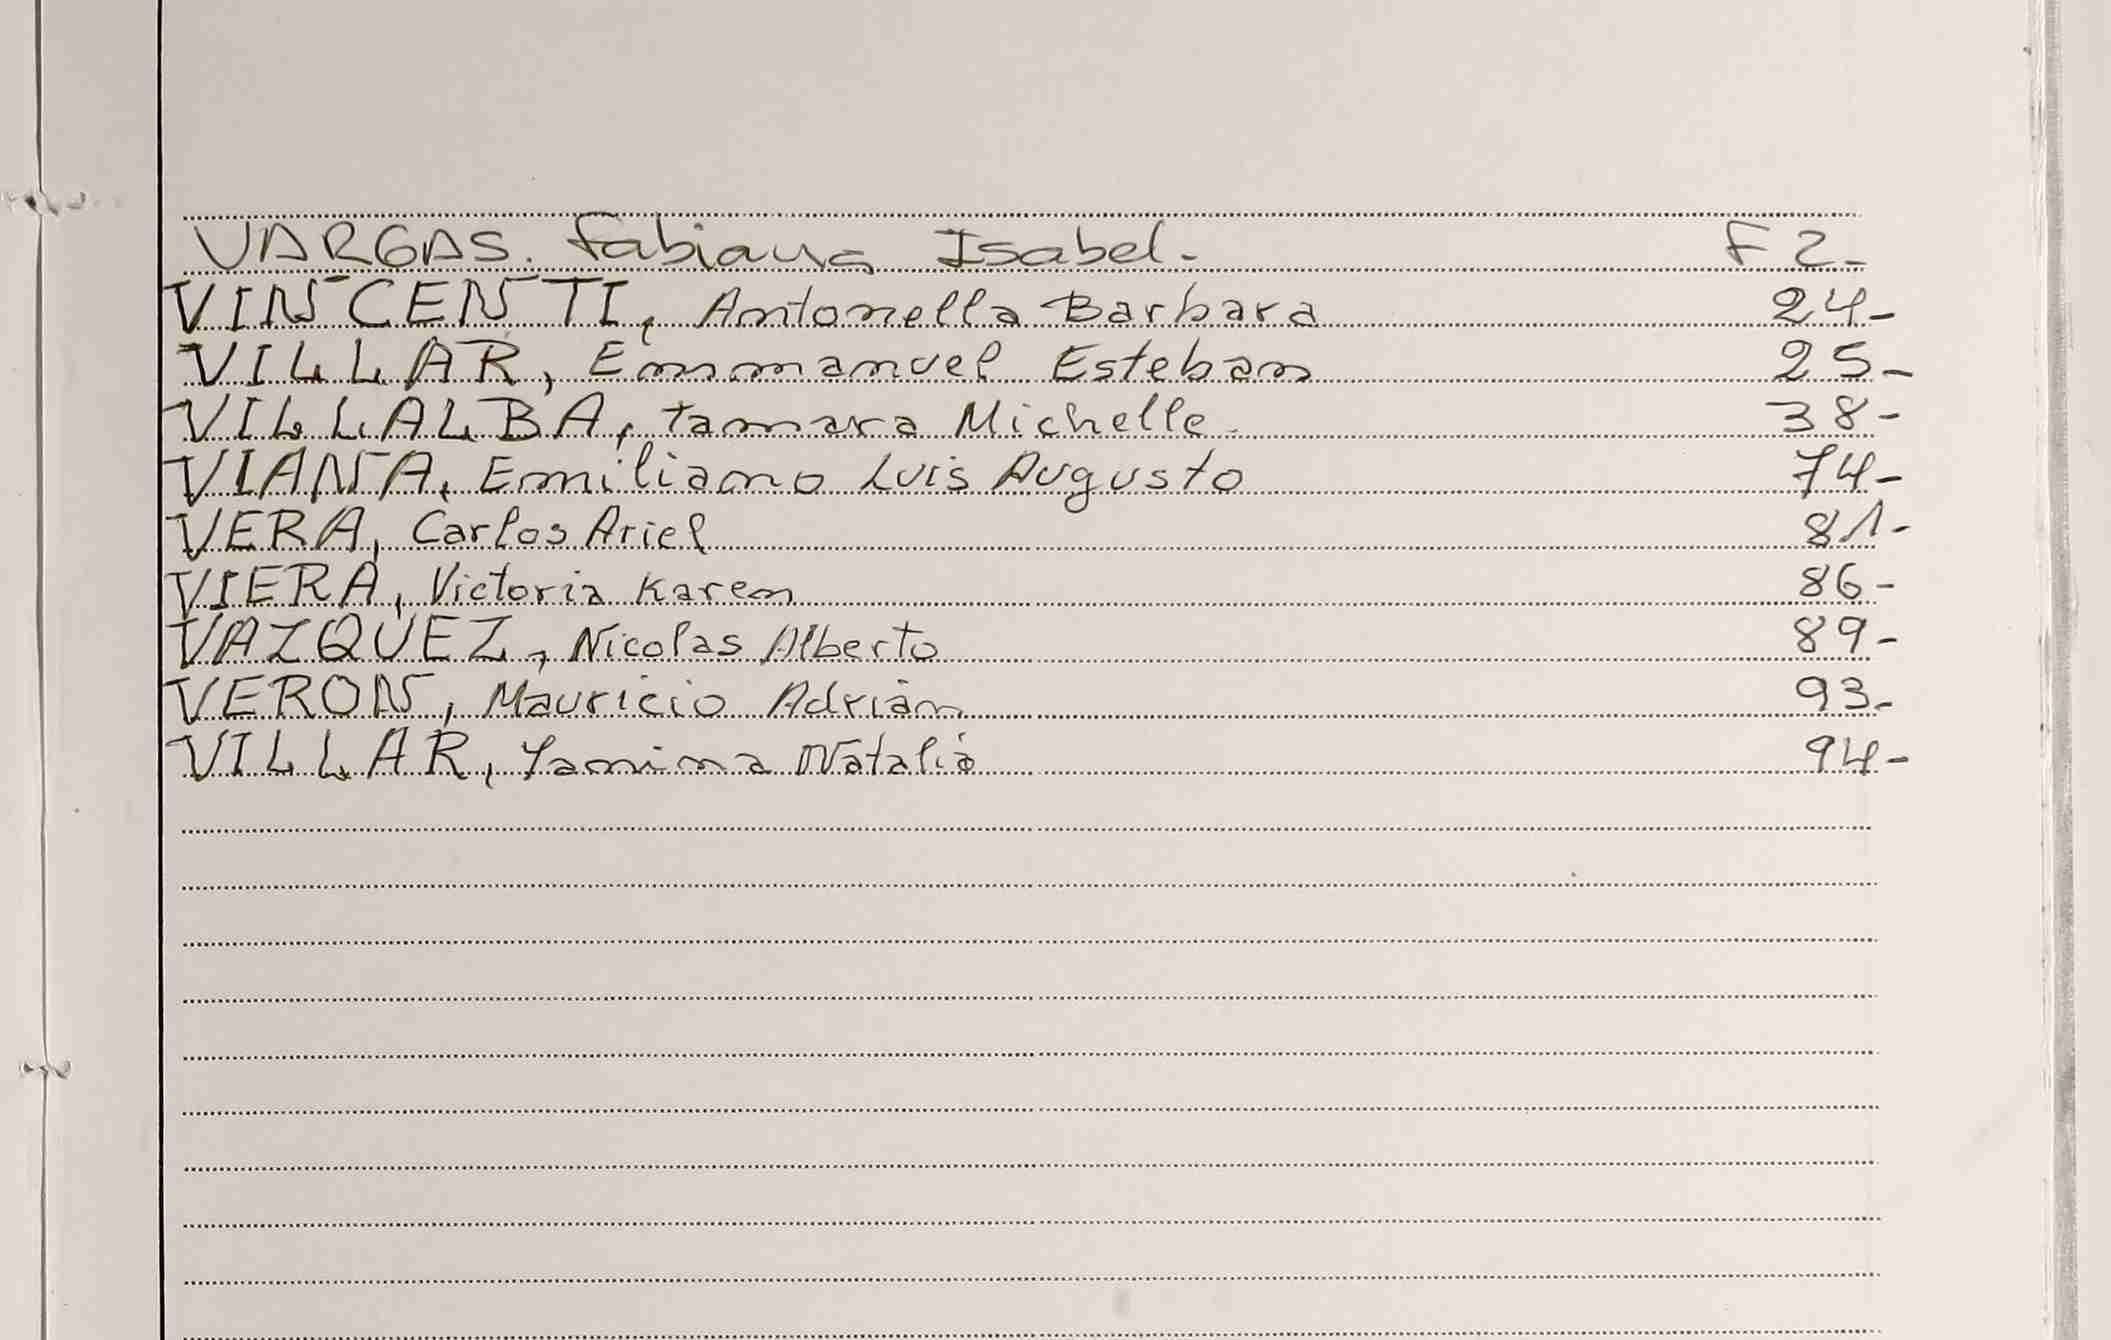 VARGAS. Fabiana Isabel- F 2-
VINCENTI, Antonella Barbara 24-
VILLAR, Emmanuel Esteban 25-
VILLALBA, Tamara Michelle 38-
VIANA, Emiliano Luis Augusto 74-
VERA, Carlos Ariel 81-
VIERA, Victoria Karen 86-
VAZQUEZ, Nicolas Alberto 89-
VERON, Mauricio Adrián 93-
VILLAR, Yamina Natalia 94-